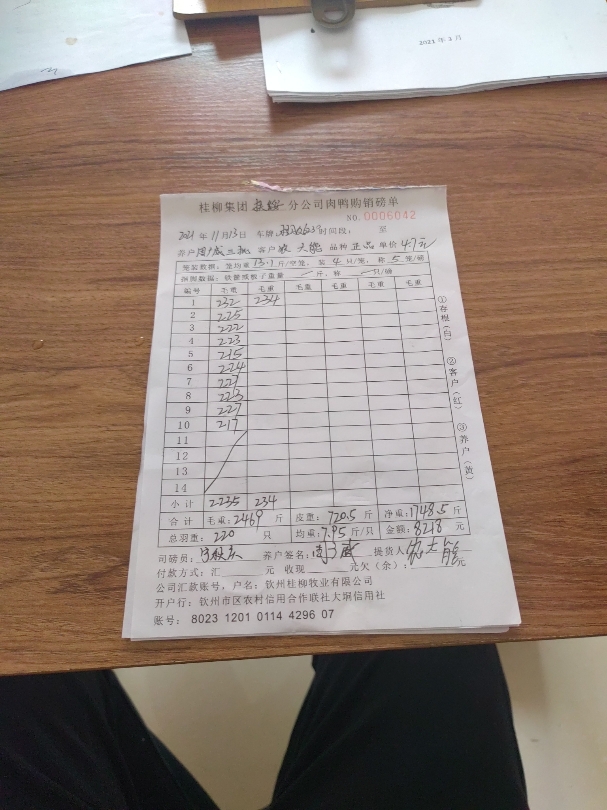 2021年3月
桂柳集团 分公司肉鸭购销磅单
NO.0006042
2021年11月13日 车牌 时间段： 至
养户 客户 大能 品种 正品 单价 4.7元
笼装数据：笼均重 13.1 斤/空笼，装 4 只/笼，称 5 笼/磅
重量 斤，称 只/磅
编号 毛重 毛重 毛重 毛重 毛重 毛重
1 232 234
2 225
3 222
4 223
5 215
6 224
7 227
8 223
9 227
10 217
11
12
13
14
小计 2235 234
合计 毛重：2469 斤 皮重：720.5 斤 净重：1748.5 斤
总羽重：220 只 均重：7.95 斤/只 金额：8218 元
司磅员： 养户签名： 提货人
付款方式：汇 元 收现 元欠（余）： 元
公司汇款账号，户名：钦州桂柳牧业有限公司
开户行：钦州市区农村信用合作联社大垌信用社
账号： 8023 1201 0114 4296 07
①存根（白）
②客户（红）
③养户（黄）